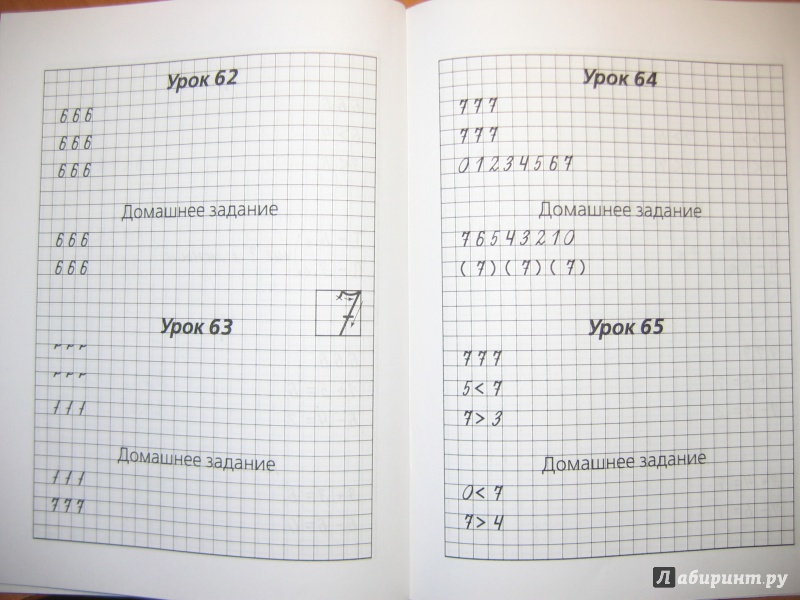 Урок 62
6 6 6
6 6 6
6 6 6
Домашнее задание
6 6 6
6 6 6
7
Урок 63
1 1 1
7 7 7
Домашнее задание
Урок 64
7 7 7
7 7 7
0 1 2 3 4 5 6 7
Домашнее задание
7 6 5 4 3 2 1 0
( 7 ) ( 7 ) ( 7 )
Урок 65
7 7 7
5 < 7
7 > 3
Домашнее задание
0 < 7
7 > 4
Лабиринт.ру